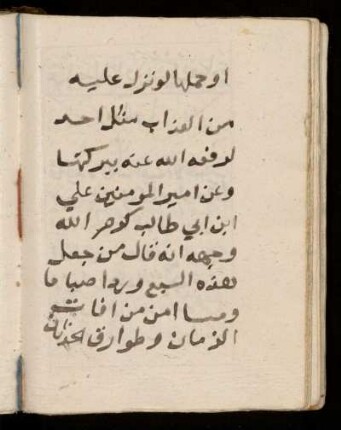 او حملها لو نزل عليه
من العذاب مثل احد
لرفعه الله عنه ببركتها
وعن امير المومنين علي
ابن ابي طالب كرم الله
وجهه انه قال من جعل
هذه السبع وردا صباحا
ومسا امن من افات
الزمان وطوارق الحدثان